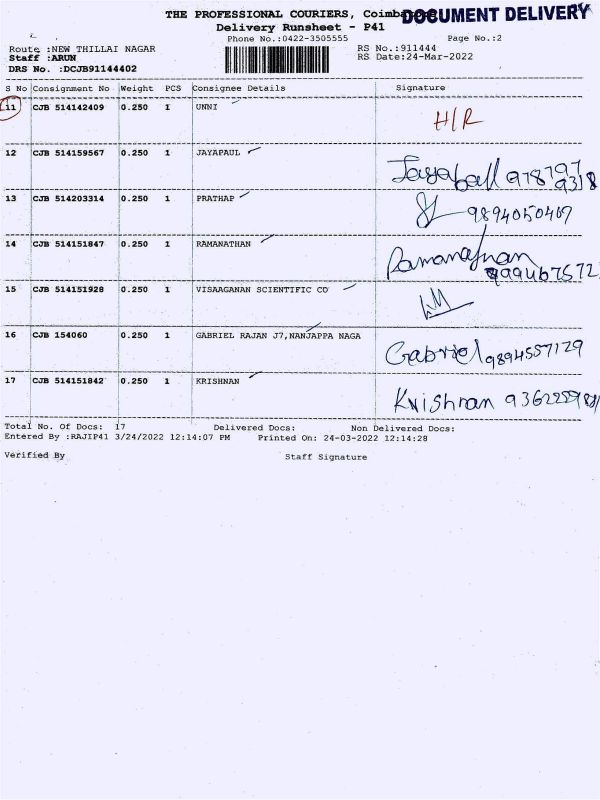 THE PROFESSIONAL COURIERS, Coimbatore
DOCUMENT DELIVERY
Delivery Runsheet - P41
Phone No.:0422-3505555
Page No.:2
Route :NEW THILLAI NAGAR
RS No.:911444
Staff :ARUN
RS Date:24-Mar-2022
DRS No. :DCJB91144402
S No Consignment No Weight PCS Consignee Details Signature
11 CJB 514142409 0.250 1 UNNI H/R
12 CJB 514159567 0.250 1 JAYAPAUL Jayapall 978797
9318
13 CJB 514203314 0.250 1 PRATHAP 9894050409
14 CJB 514151847 0.250 1 RAMANATHAN Ramanathan
15 CJB 514151928 0.250 1 VISAAGANAN SCIENTIFIC CO
16 CJB 154060 0.250 1 GABRIEL RAJAN J7,NANJAPPA NAGA Gabriel 9894557129
17 CJB 514151842 0.250 1 KRISHNAN Krishnan
Total No. Of Docs: 17 Delivered Docs: Non Delivered Docs:
Entered By :RAJIP41 3/24/2022 12:14:07 PM Printed On: 24-03-2022 12:14:28
Verified By Staff Signature